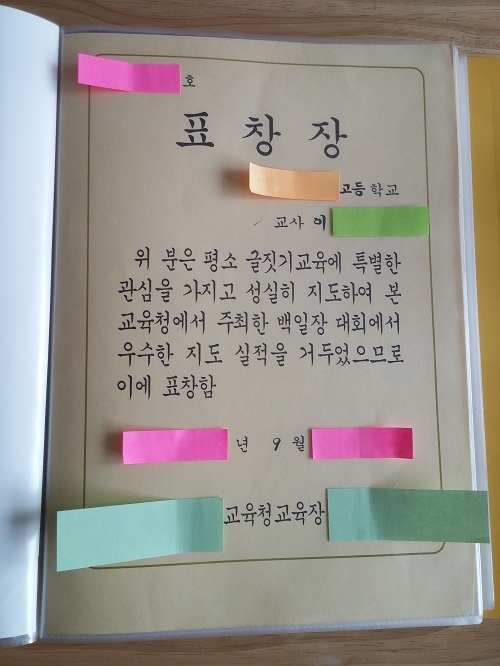 호
표 창 장
고등학교
교사 이
위 분은 평소 글짓기교육에 특별한
관심을 가지고 성실히 지도하여 본
교육청에서 주최한 백일장 대회에서
우수한 지도 실적을 거두었으므로
이에 표창함
년 9 월
교육청교육장